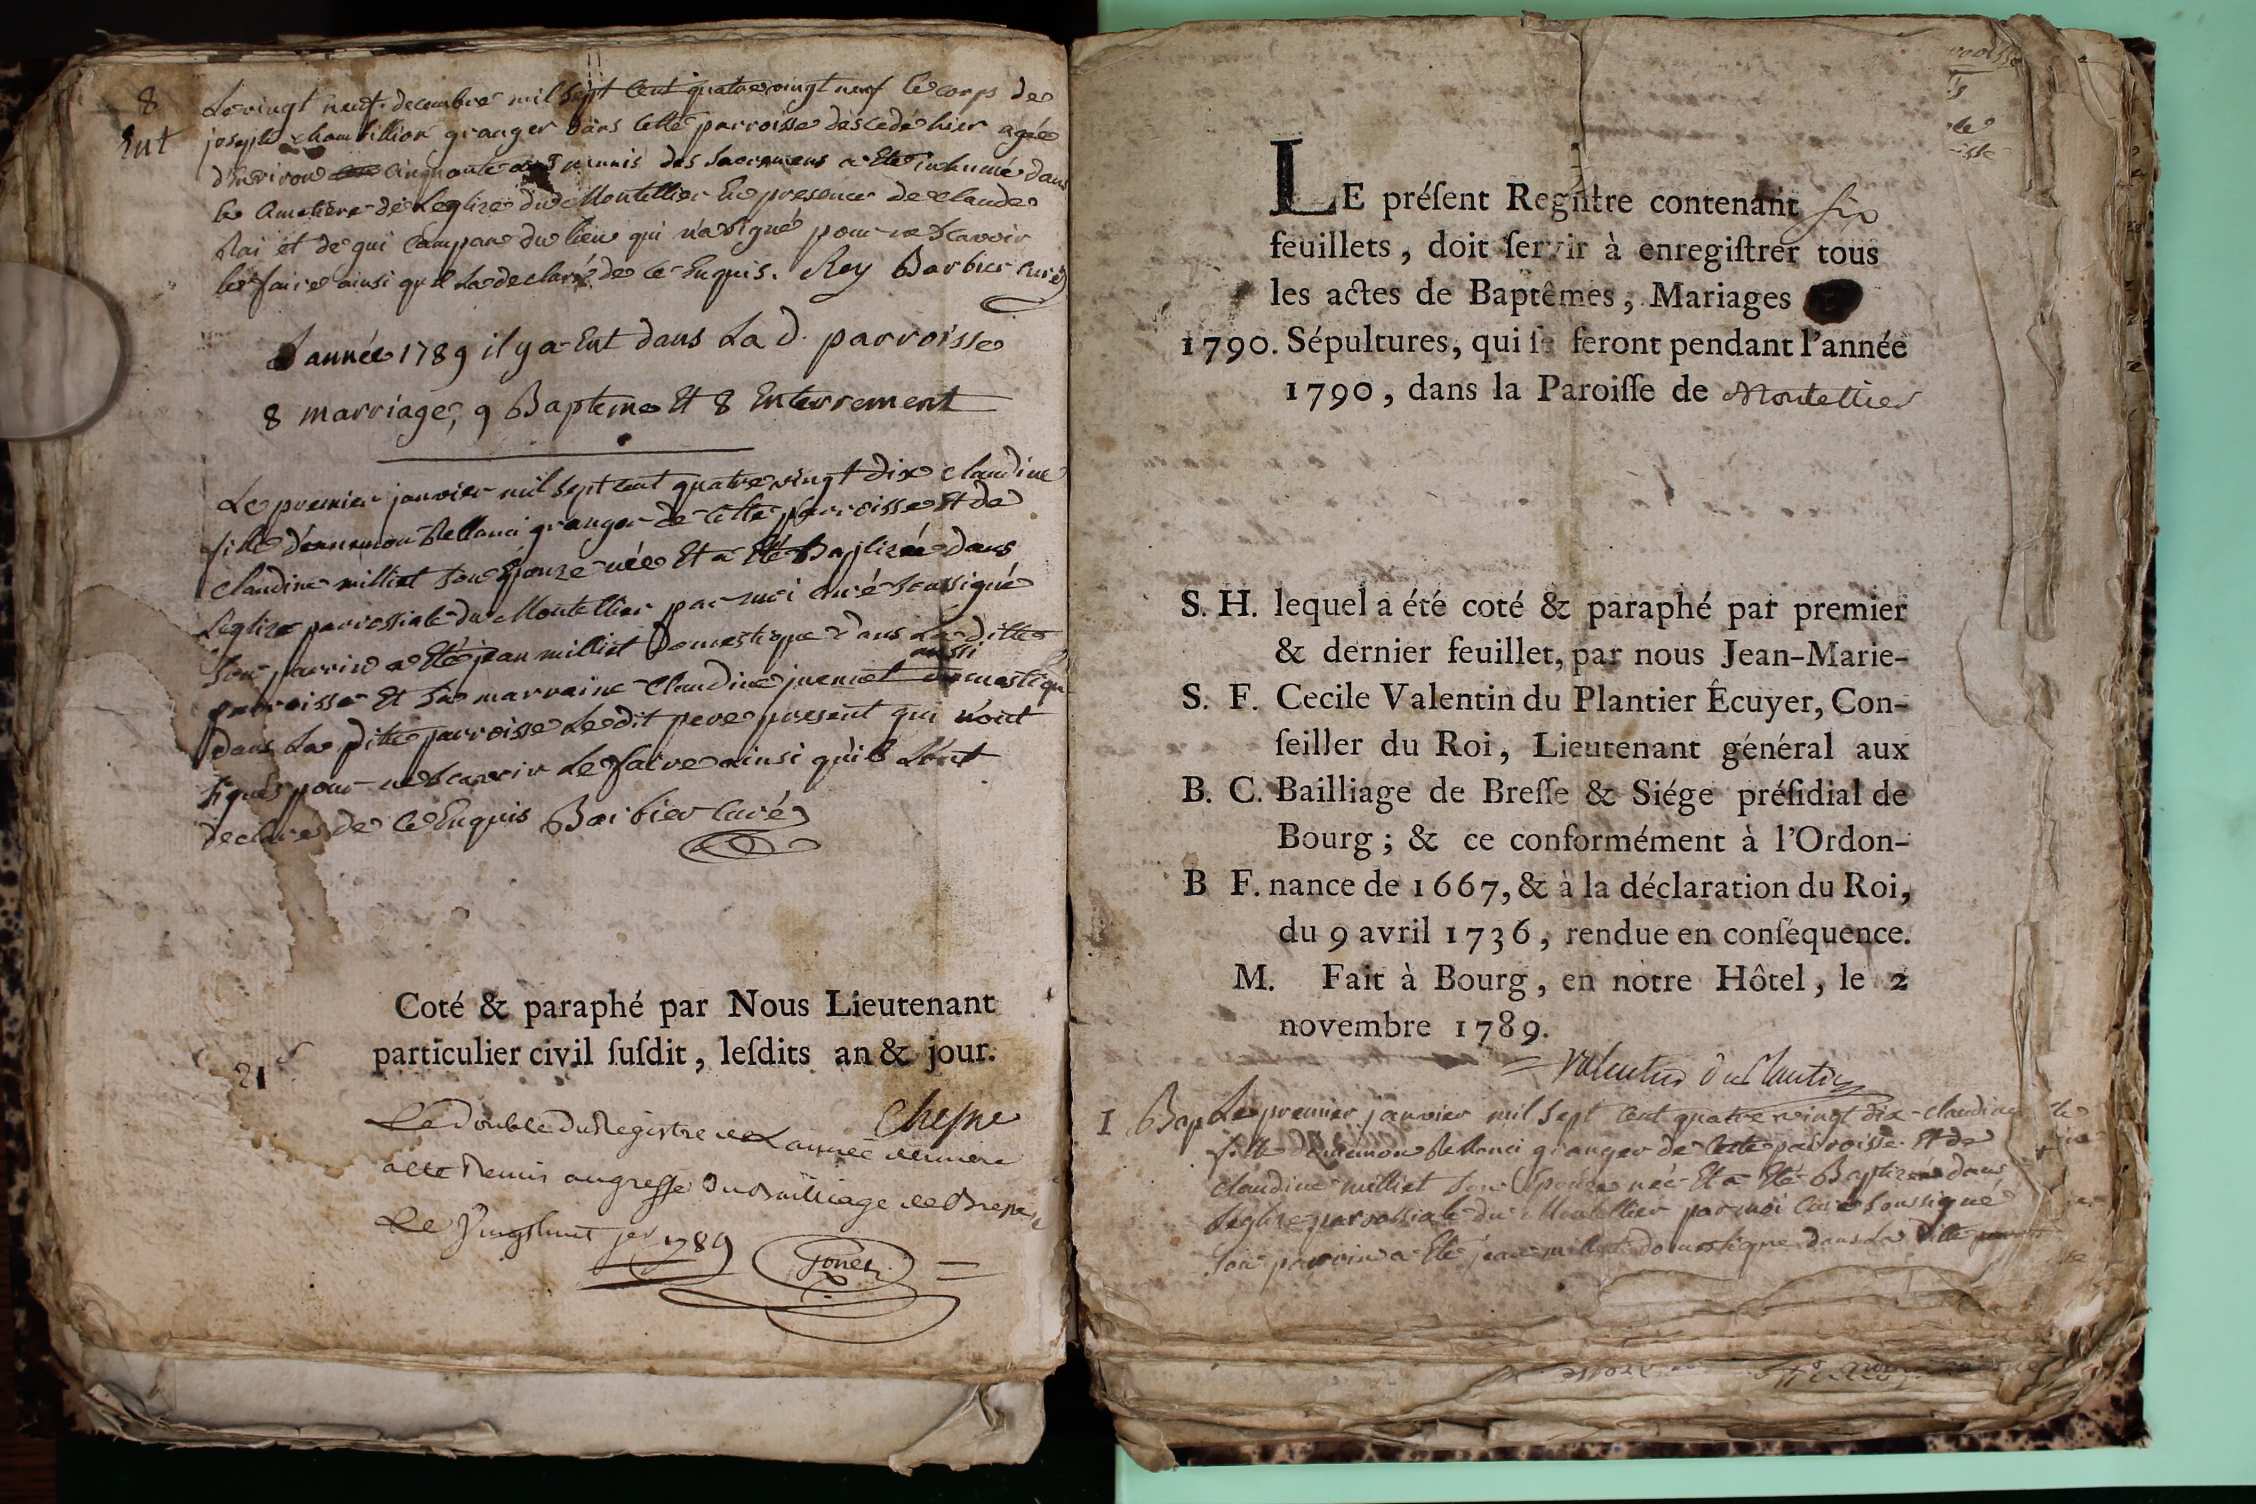 8
Ent
Le vingt neuf decembre mil sept cent quatre vingt neuf le corps de
joseph chambillion granger dans cette parroisse descedé hier agée
d'environ cinquante ans munis des sacremens a Eté inhumé dans
le cimetiere de Leglize du Montellier En presence de claude
Rai et de gui du lieu qui n'a signé pour ne scavoir
le faire ainsi qu'il La declaré de ce Enquis. Rey Barbier Curé
L'année 1789 il y a Eut dans La d. parroisse
8 marriage, 9 Bapteme Et 8 Enterrement
Le premier janvier mil sept cent quatre vingt dix claudine
fille d'ennemon Bellanci granger de cette parroisse Et de
claudine milliet son Epouze née Et a Eté Baptizée dans
Leglize parrossiale du Montellier par moi curé soussigné
son parrin a Eté jean milliet Domestique dans La ditte
parroisse Et sa marraine claudine juenet aussi domestique
dans La ditte parroisse Le dit pere present qui n'ont
signés pour ne scavoir Le faire ainsi qu'ils L'ont
declarés de ce Enquis Barbier Curé
Coté & paraphé par Nous Lieutenant
particulier civil ſuſdit, leſdits an & jour.
21
Chesne
Le Double Du Registre de L'année derniere
a ete Remis au greffe Du Bailliage de Bresse
Le Vingt huit jer 1789
Gonet
LE préſent Regiſtre contenant six
feuillets, doit ſervir à enregiſtrer tous
les actes de Baptêmes, Mariages
1790. Sépultures, qui ſe feront pendant l'année
1790, dans la Paroiſſe de Montellier
S. H. lequel a été coté & paraphé par premier
& dernier feuillet, par nous Jean-Marie-
S. F. Cecile Valentin du Plantier Êcuyer, Con-
ſeiller du Roi, Lieutenant général aux
B. C. Bailliage de Breſſe & Siége préſidial de
Bourg; & ce conformément à l'Ordon-
B F. nance de 1667, & à la déclaration du Roi,
du 9 avril 1736, rendue en conſéquence.
M. Fait à Bourg, en notre Hôtel, le 2
novembre 1789.
Valentin du Plantier
1 Bap Le premier janvier mil sept cent quatre vingt dix claudine
fille d'ennemon Bellanci granger de cette parroisse Et de
claudine milliet son Epouze née Et a Eté Baptizée dans
Leglize parrossiale du Montellier par moi Curé soussigné
son parrin a Eté jean milliet domestique dans La ditte